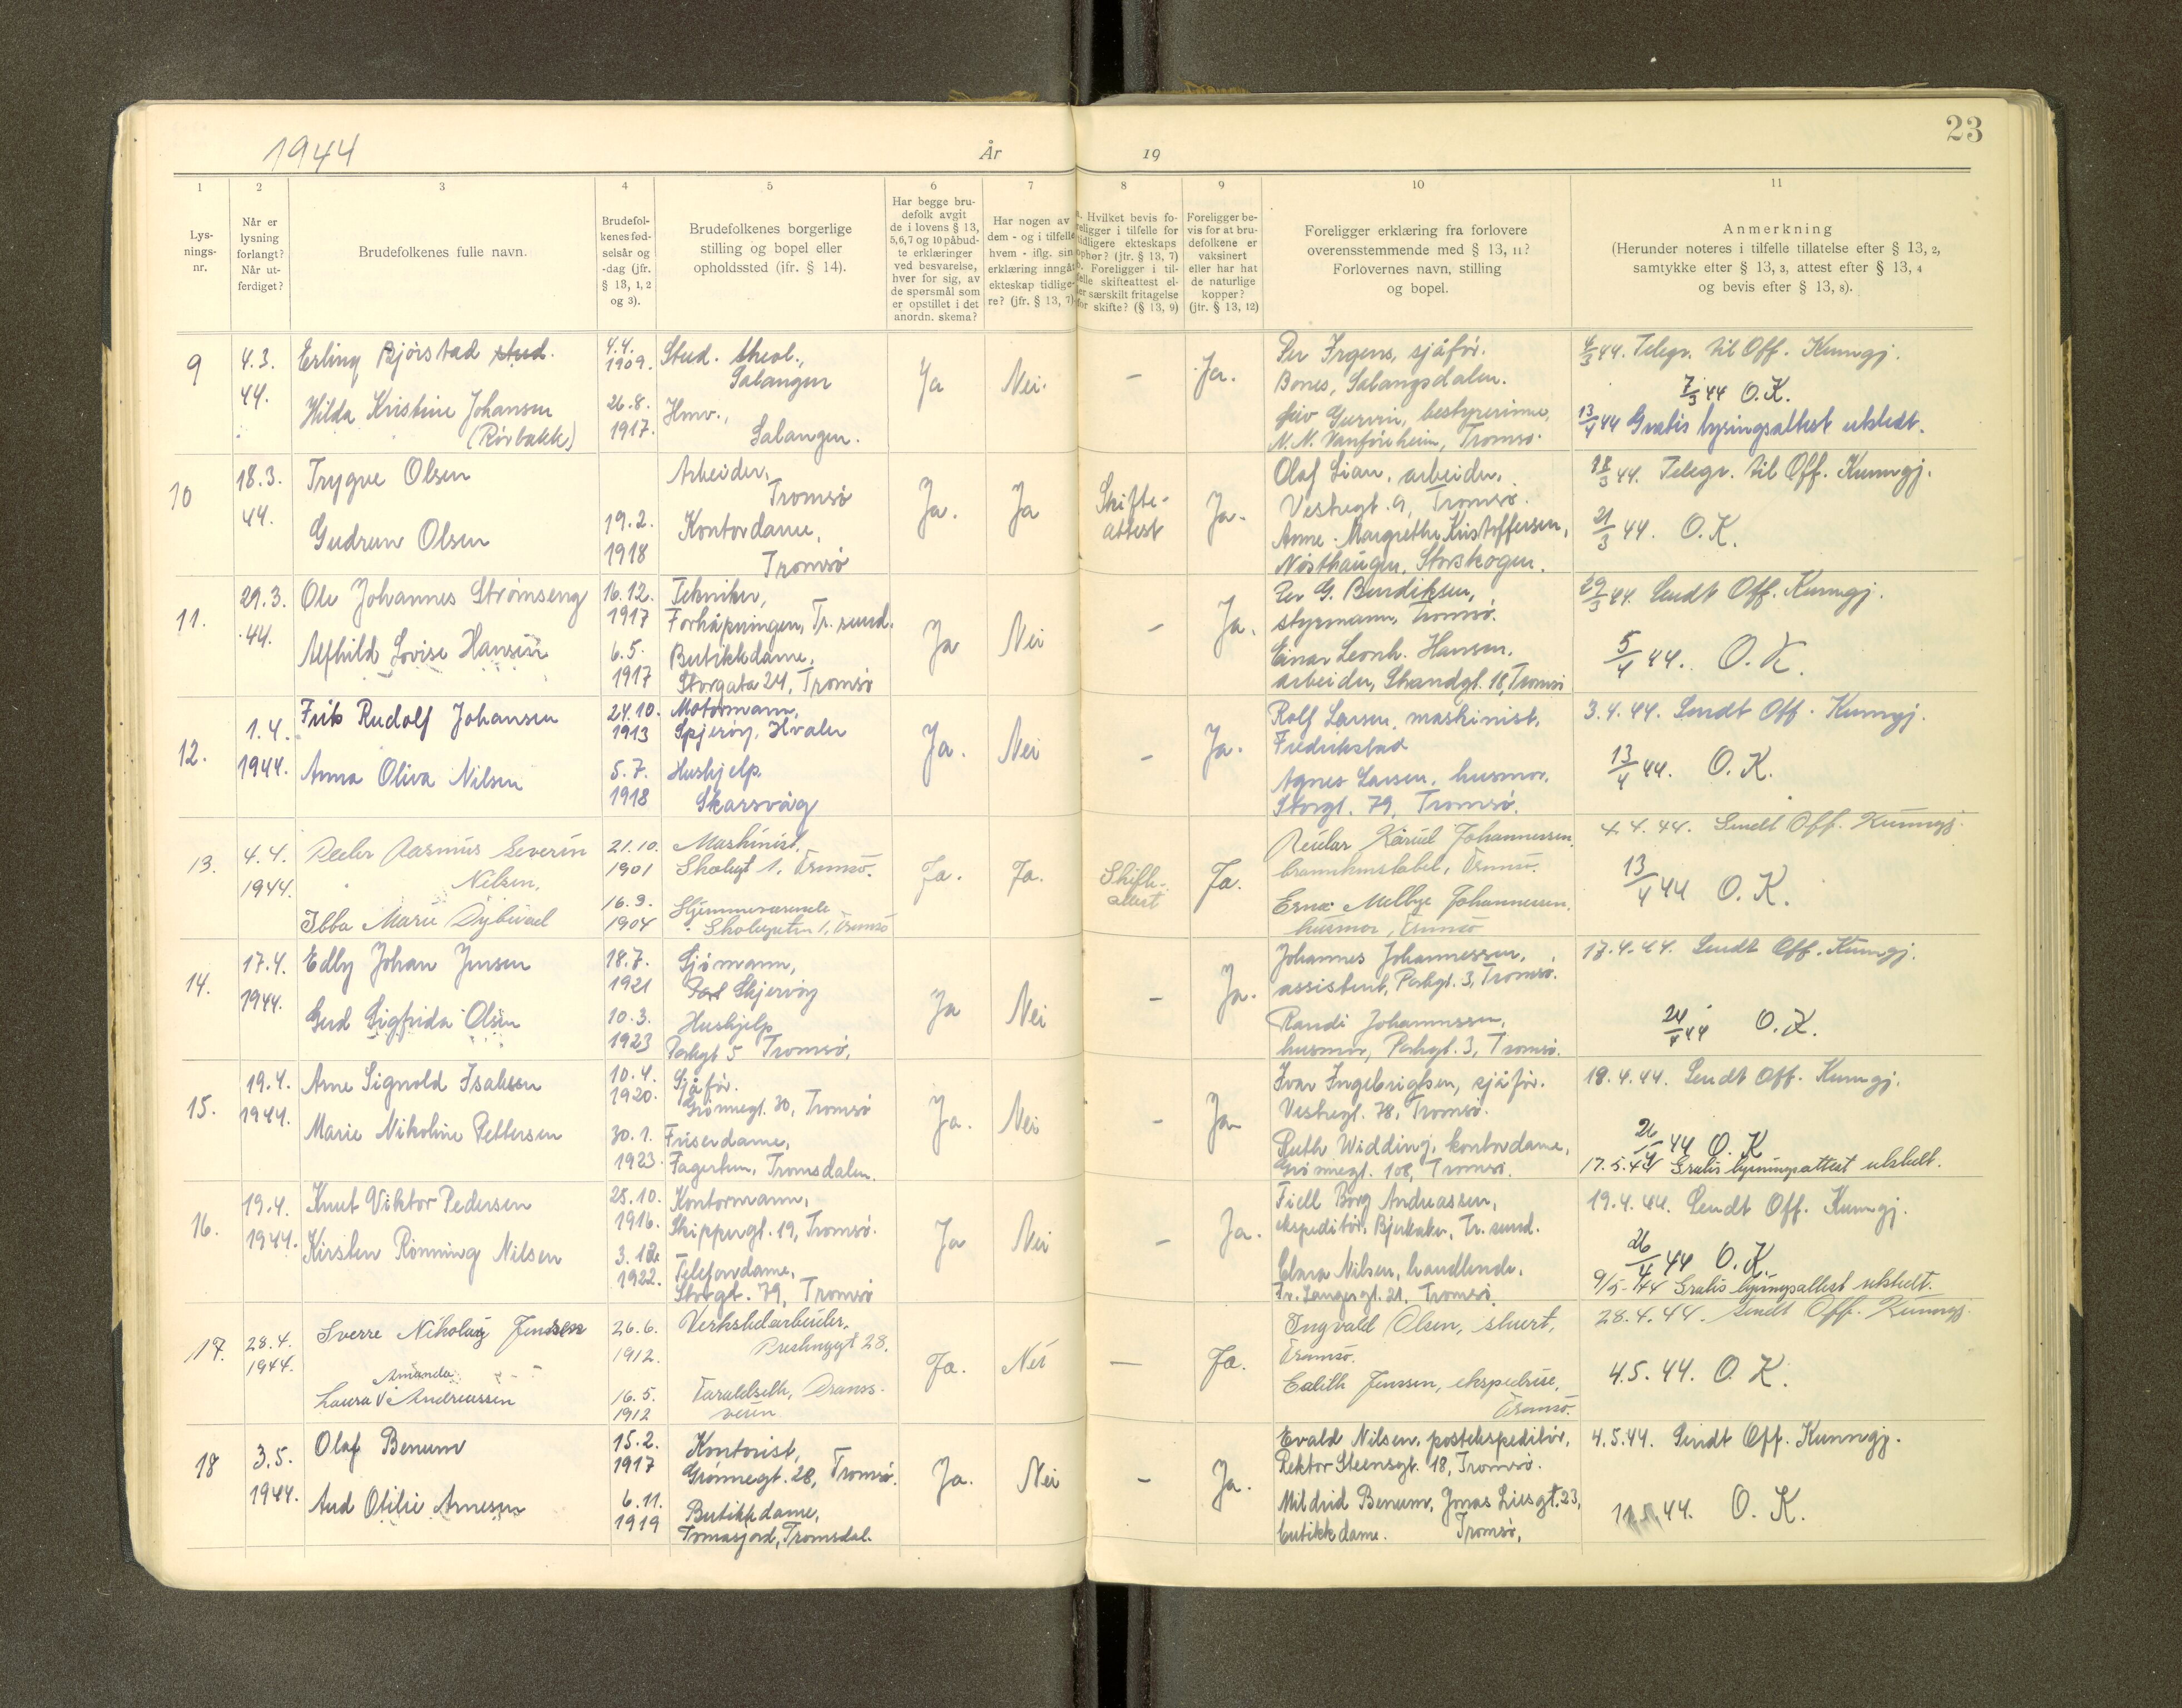 1944
År
19
23
1
2
3
4
5
6
7
8
9
10
11
Lysningsnr.
Når er lysning forlangt? Når utferdiget?
Brudefolkenes fulle navn.
Brudefolkenes fødselsår og -dag (jfr. § 13, 1, 2 og 3).
Brudefolkenes borgerlige stilling og bopel eller opholdssted (jfr. § 14).
Har begge brudefolk avgit de i lovens § 13, 5, 6, 7 og 10 påbudte erklæringer ved besvarelse, hver for sig, av de spørsmål som er opstillet i det anordn. skema?
Har nogen av dem - og i tilfelle hvem - iflg. sin erklæring inngått ekteskap tidligere? (jfr. § 13, 7)
Hvilket bevis foreligger i tilfelle for tidligere ekteskaps ophør? (jfr. § 13, 7)
Foreligger i tilfelle skifteattest eller særskilt fritagelse for skifte? (§ 13, 9)
Foreligger bevis for at brudefolkene er vaksinert eller har hat de naturlige kopper? (jfr. § 13, 12)
Foreligger erklæring fra forlovere overensstemmende med § 13, 11? Forlovernes navn, stilling og bopel.
Anmerkning
(Herunder noteres i tilfelle tillatelse efter § 13, 2, samtykke efter § 13, 3, attest efter § 13, 4 og bevis efter § 13, 8).
9
4.3.
44.
Erling Bjørstad stud.
Hilda Kristine Johansen
(Rørbakk)
4.4.
1909.
26.8.
1917.
Stud. theol.,
Salangen
Hmv.,
Salangen.
Ja
Nei.
–
Ja.
Per Irgens, sjåfør.
Bones, Salangsdalen.
Gurvin, bestyrerinne,
N.N. Vanføreheim, Tromsø.
4/3 44. Telegr. til Off. Kunngj.
7/3 44 O.K.
13/4 44 Gratis lysingsattest utstedt.
10
18.3.
44.
Trygve Olsen
Gudrun Olsen
19.2.
1918
Arbeider,
Tromsø
Kontordame,
Tromsø
Ja.
Ja
Skifte-
attest
Ja.
Olaf Lian, arbeider,
Vestregt. 9, Tromsø.
Anne Margrethe Kristoffersen,
Nøsthaugen, Storskogen.
18/3 44. Telegr. til Off. Kunngj.
21/3 44. O.K.
11.
29.3.
44.
Ole Johannes Strømseng
Alfhild Lovise Hansen
16.12.
1917
6.5.
1917
Tekniker,
Forhåpningen, Tr. sund.
Butikkdame,
Storgata 24, Tromsø
Ja
Nei
–
Ja.
Per G. Bendiksen,
styrmann, Tromsø.
Einar Leonh. Hansen,
arbeider, Strandgt. 18, Tromsø
29/3 44. Sendt Off. Kunngj.
5/4 44. O.K.
12.
1.4.
1944.
Frits Rudolf Johansen
Anna Oliva Nilsen
24.10.
1913
5.7.
1918
Motormann,
Spjerøy, Hvaler
Hushjelp.
Skarsvåg
Ja.
Nei
–
Ja.
Rolf Larsen, maskinist,
Fredrikstad
Agnes Larsen, husmor,
Storgt. 79, Tromsø.
3.4.44. Sendt Off. Kunngj.
13/4 44. O.K.
13.
4.4.
1944.
Peder Rasmus Severin
Nilsen,
Ebba Marie Dybwad
21.10.
1901
16.9.
1904
Maskinist,
Skolegt 1. Tromsø.
Hjemmeværende
Skolegaten 1, Tromsø
Ja.
Ja.
Skifte-
attest
Ja.
Reidar Kårid Johannessen,
brannkonstabel, Tromsø.
Erna Melbye Johannessen,
husmor, Tromsø
4.4.44. Sendt Off. Kunngj.
13/4 44 O.K.
14.
17.4.
1944.
Edly Johan Jensen
Gerd Sigfrida Olsen
18.7.
1921
10.3.
1923
Sjømann,
Skjervøy
Hushjelp
Parkgt 5 Tromsø,
Ja
Nei
–
Ja.
Johannes Johannessen,
assistent, Parkgt. 3, Tromsø.
Randi Johannessen,
husmor, Parkgt. 3, Tromsø.
17.4.44. Sendt Off. Kunngj.
24/4 44 O.K.
15.
19.4.
1944.
Arne Signold Isaksen
Marie Nikoline Pettersen
10.4.
1920.
30.1.
1923.
Sjåfør.
Grønnegt. 30, Tromsø
Friserdame,
Fagertun, Tromsdalen.
Ja.
Nei
–
Ja
Ivar Ingebrigtsen, sjåfør.
Vestregt. 78, Tromsø.
Ruth Widding, kontordame,
Grønnegt. 108, Tromsø.
19.4.44. Sendt Off. Kunngj.
26/4 44 O.K
17.5.44 Gratis lysningsattest utstedt.
16.
19.4.
1944.
Knut Viktor Pedersen
Kirsten Rønning Nilsen
28.10.
1916.
3.12.
1922.
Kontormann,
Skippergt. 19, Tromsø.
Telefondame,
Storgt. 79, Tromsø
Ja
Nei
–
Ja.
Fjell Borg Andreassen,
ekspeditør, Bjerkaker, Tr. sund.
Clara Nilsen, handlende,
Fr. Langesgt. 21, Tromsø
19.4.44. Sendt Off. Kunngj.
26/4 44 O.K.
9/5-44 Gratis lysingsattest utstedt.
17.
28.4.
1944.
Sverre Nikolay Jenssen
Amanda
Laura V Andreassen
26.6.
1912.
16.5.
1912
Verkstedarbeider,
28.
Ja.
Nei
—
Ja.
Ingvald Olsen, stuert,
Tromsø.
Edith Jenssen, ekspedrise,
Tromsø.
28.4.44. Sendt Off. Kunngj.
4.5.44. O.K.
18
3.5.
1944.
Olaf Benum
Aud Otilie Arnesen
15.2.
1917
6.11.
1919
Kontorist,
Grønnegt. 28, Tromsø.
Butikkdame,
Tomasjord, Tromsdal.
Ja.
Nei
–
Ja.
Evald Nilsen, postekspeditør,
Rektor Steensgt. 18, Tromsø.
Mildrid Benum, Jonas Liesgt. 23,
butikkdame. Tromsø,
4.5.44. Sendt Off. Kunngj.
11.5.44. O.K.